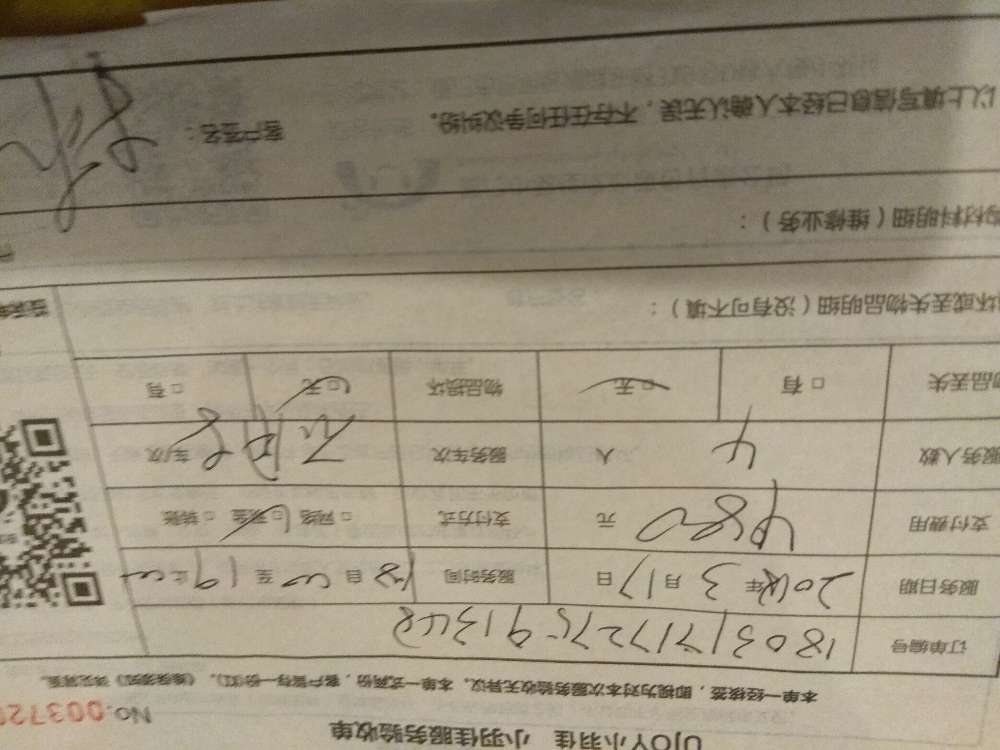 UJOY小羽佳 小羽佳服务验收单
No.003720
本单一经核签，即视为对本次服务验收无异议。本单一式两份，客户留存一份（红），《维保须知》详见背面。
订单编号
服务日期 2018年 3月17日 服务时间 自 至 19
支付费用 480 元 支付方式 □网络 □现金 □转账
服务人数 4 人 服务车次 车/次
物品丢失 □有 □无 物品损坏 □无 □有
坏或丢失物品明细（没有可不填）：
材料明细（维修业务）：
以上填写信息已经本人确认无误，不存在任何争议纠纷。 客户签名：